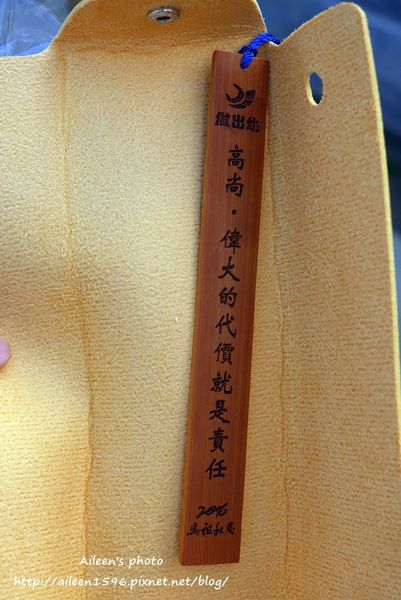 做出你
高尚·偉大的代價就是責任
2016
馬祖秋慶
Aileen's photo
http://aileen1596.pixnet.net/blog/